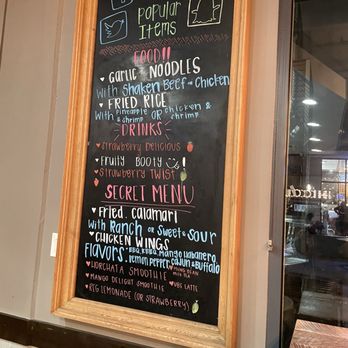 Popular
Items
FOOD!!
GARLIC NOODLES
With Shaken Beef or Chicken
FRIED RICE
With Pineapple & shrimp OR chicken & shrimp
DRINKS
Strawberry Delicious
Fruity Booty
Strawberry TWIST
SECRET MENU
Fried Calamari
With Ranch or Sweet & Sour
CHICKEN WINGS
Flavors: BBQ, KBBQ, Mango Habanero, lemon pepper, cajun & Buffalo
HORCHATA SMOOTHIE
MUNG BEAN MILK TEA
MANGO DELIGHT SMOOTHIE
UBE LATTE
REG LEMONADE (OR STRAWBERRY)